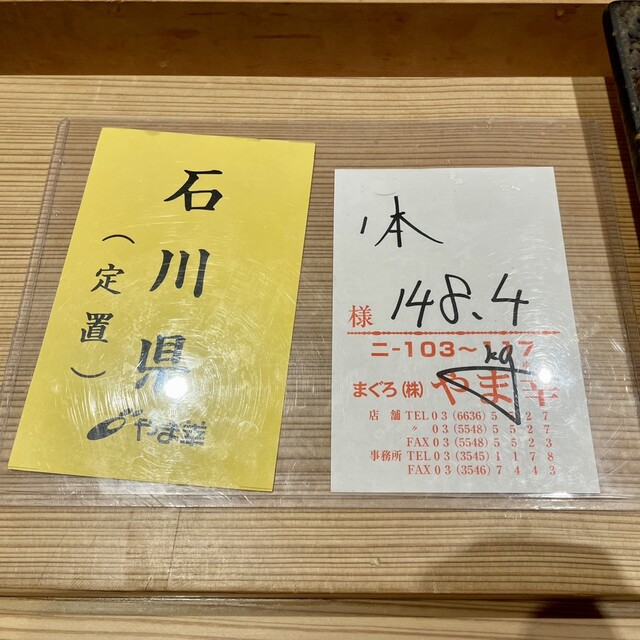 石川県
（定置）
やま幸
1本
様 148.4
kg
ニ-103～117
まぐろ（株）やま幸
店 舗 TEL 03 (6636) 5 5 2 7
〃 03 (5548) 5 5 2 7
FAX 03 (5548) 5 5 2 3
事務所 TEL 03 (3545) 1 1 7 8
FAX 03 (3546) 7 4 4 3